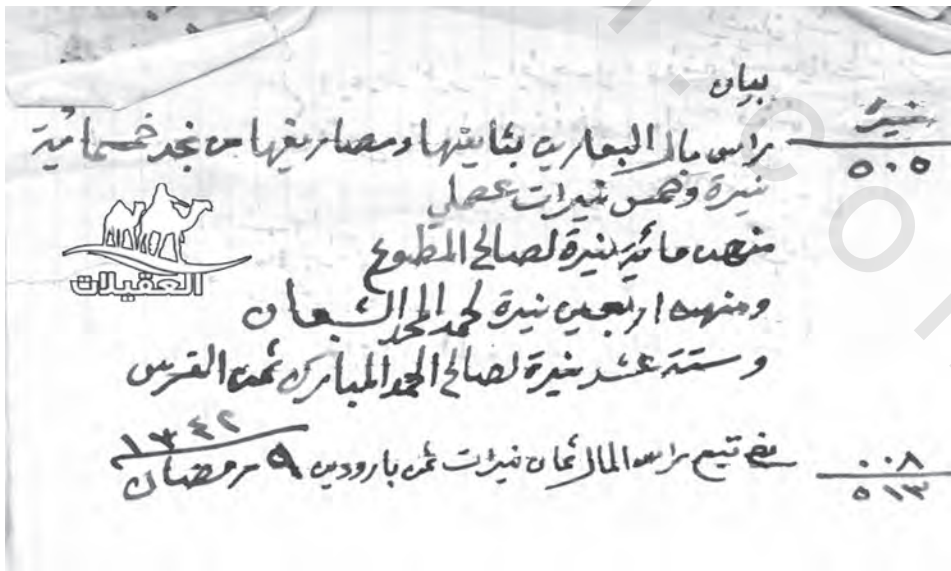 بيان
نيرة
٥٠٥
راس مال البعارين بثايتها ومصاريفها من نجد خمسمائة
نيرة وخمس نيرات عصملي
منهن مائة نيرة لصالح المطوع
ومنهن اربعين نيرة لحمد المحمد الشبعان
وستة عشر نيرة لصالح الحمد المبارك ثمن الفرس
تتبع راس المال ثمان نيرات ثمن بارودين ٩ رمضان ١٣٤٢
٠٠٨
٥١٣
العقيلات